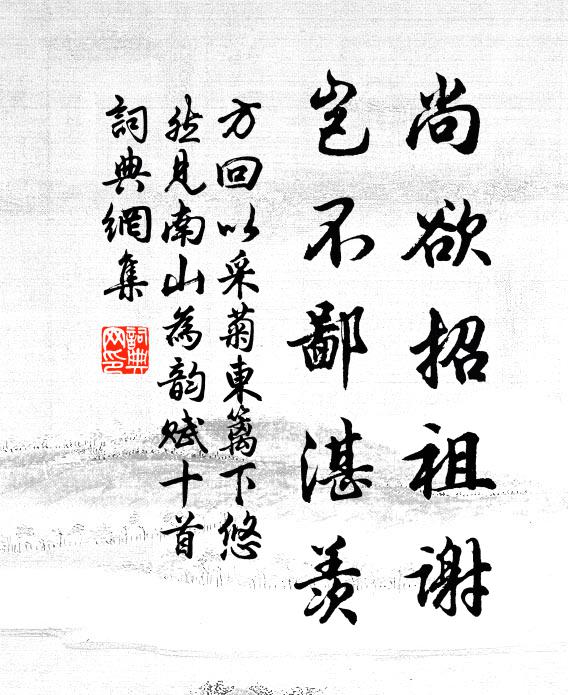 尚欲招祖谢
岂不鄙湛羨
方回以采菊東篱下悠
然見南山為韵赋十首
詞典網集
詞典
网印